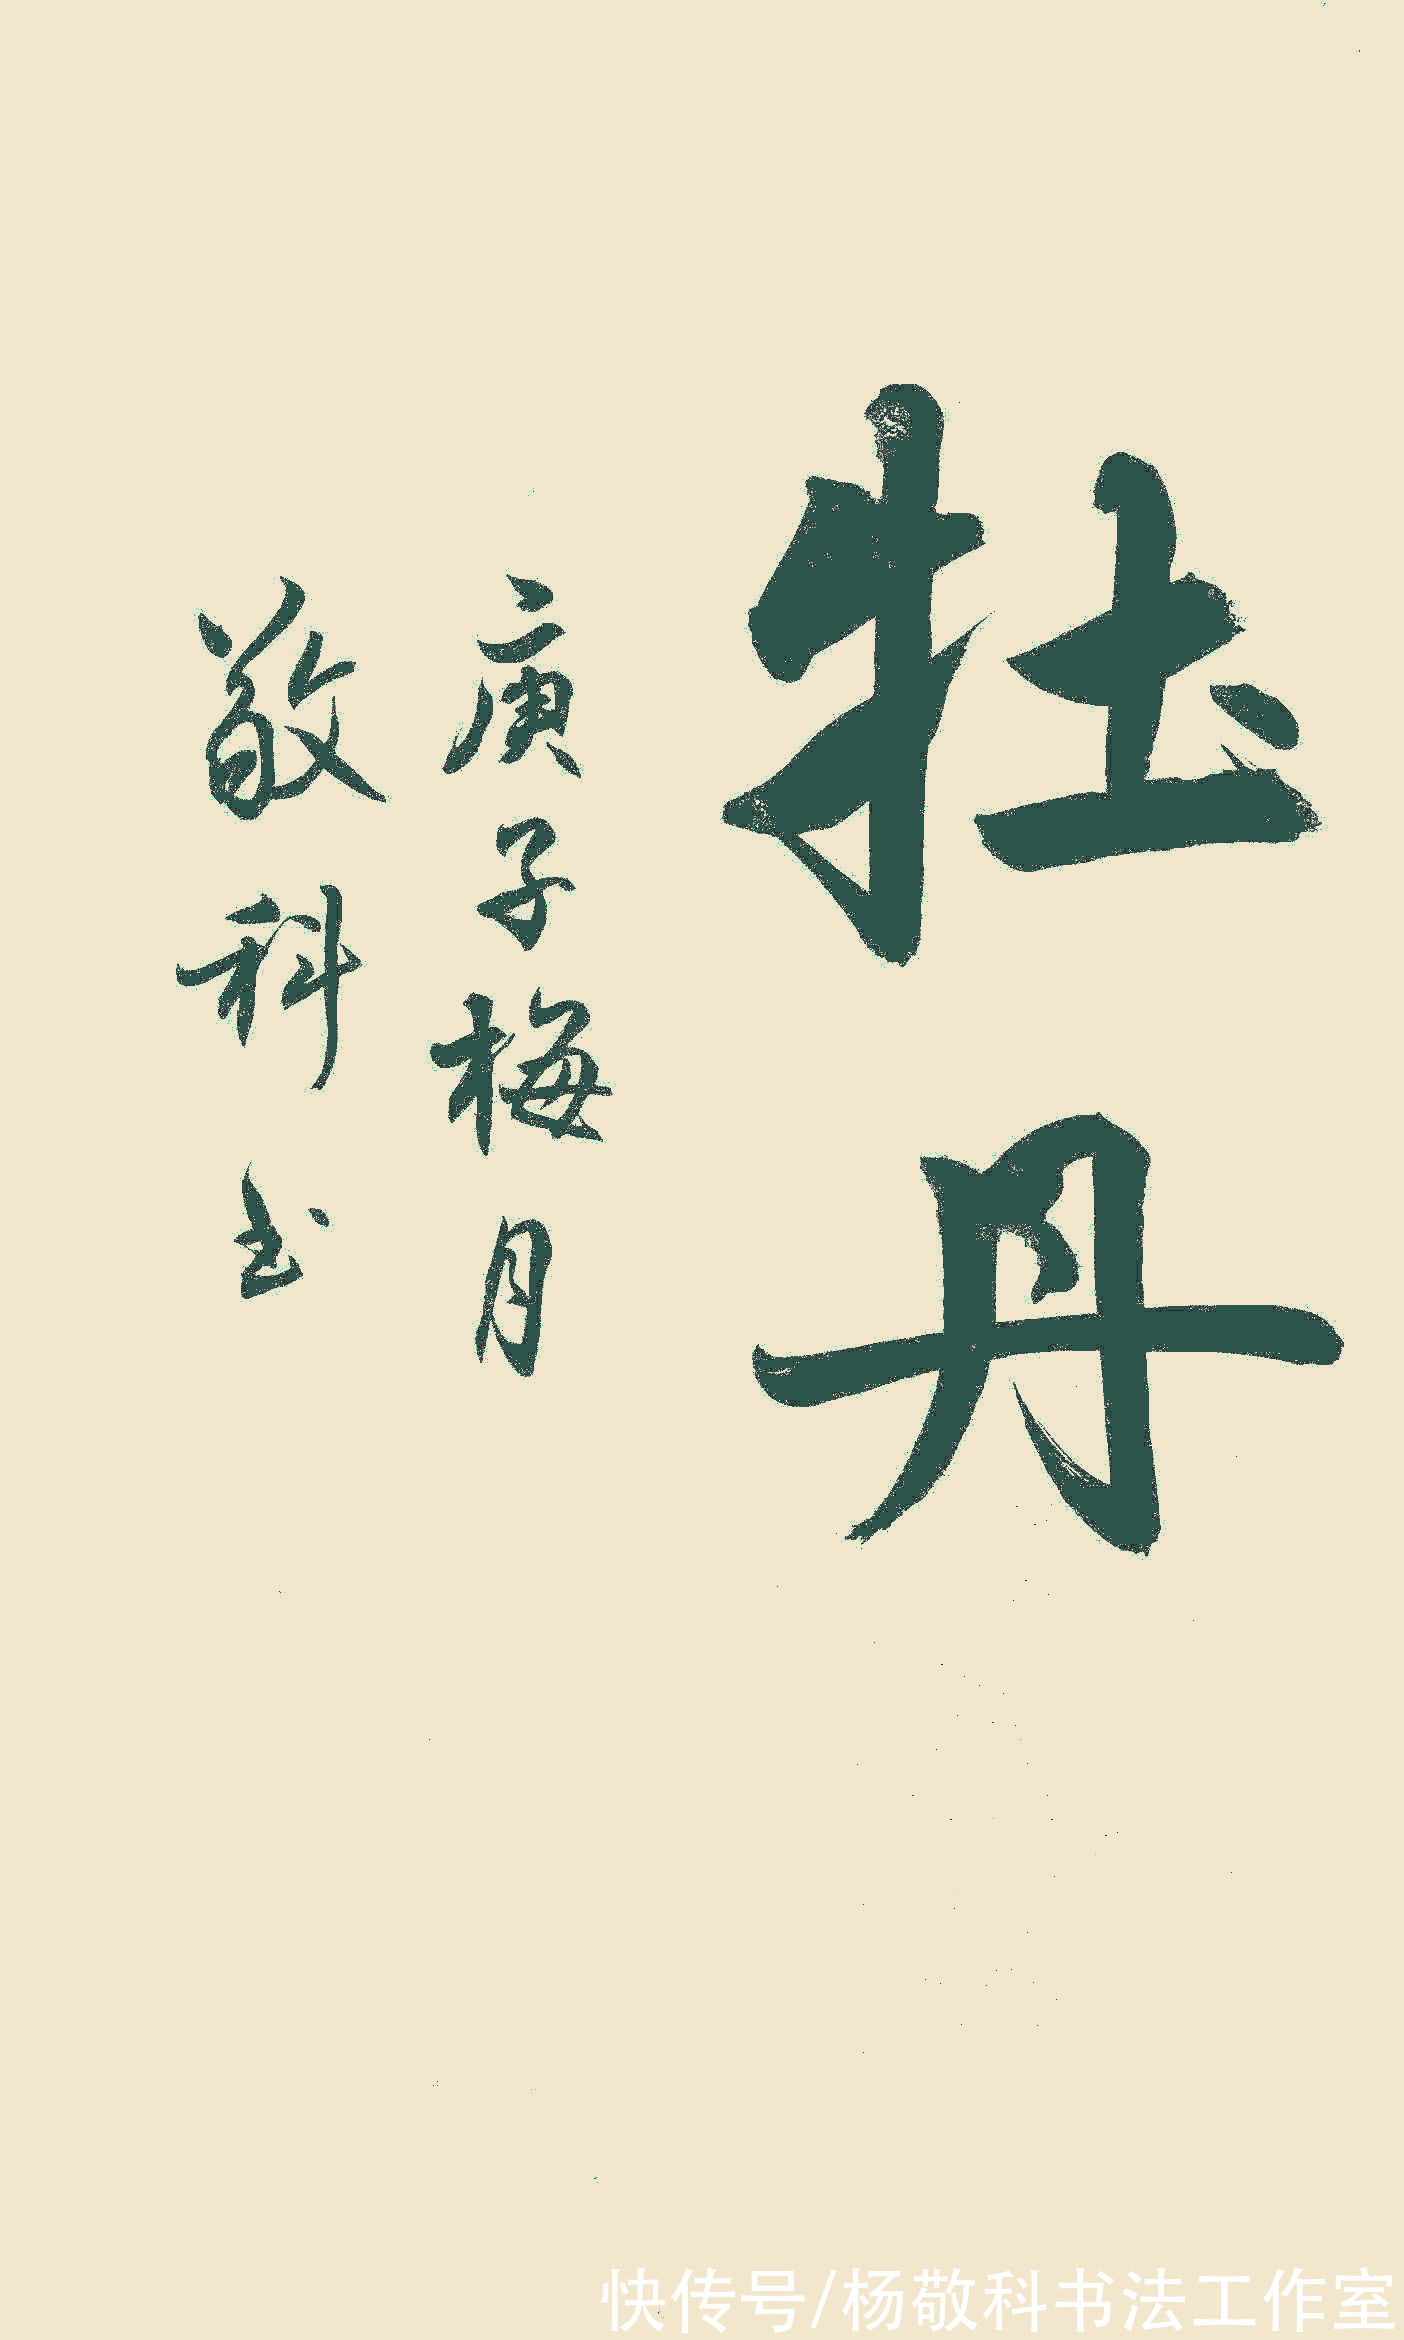 牡丹
庚子梅月
敬科书
快传号/杨敬科书法工作室